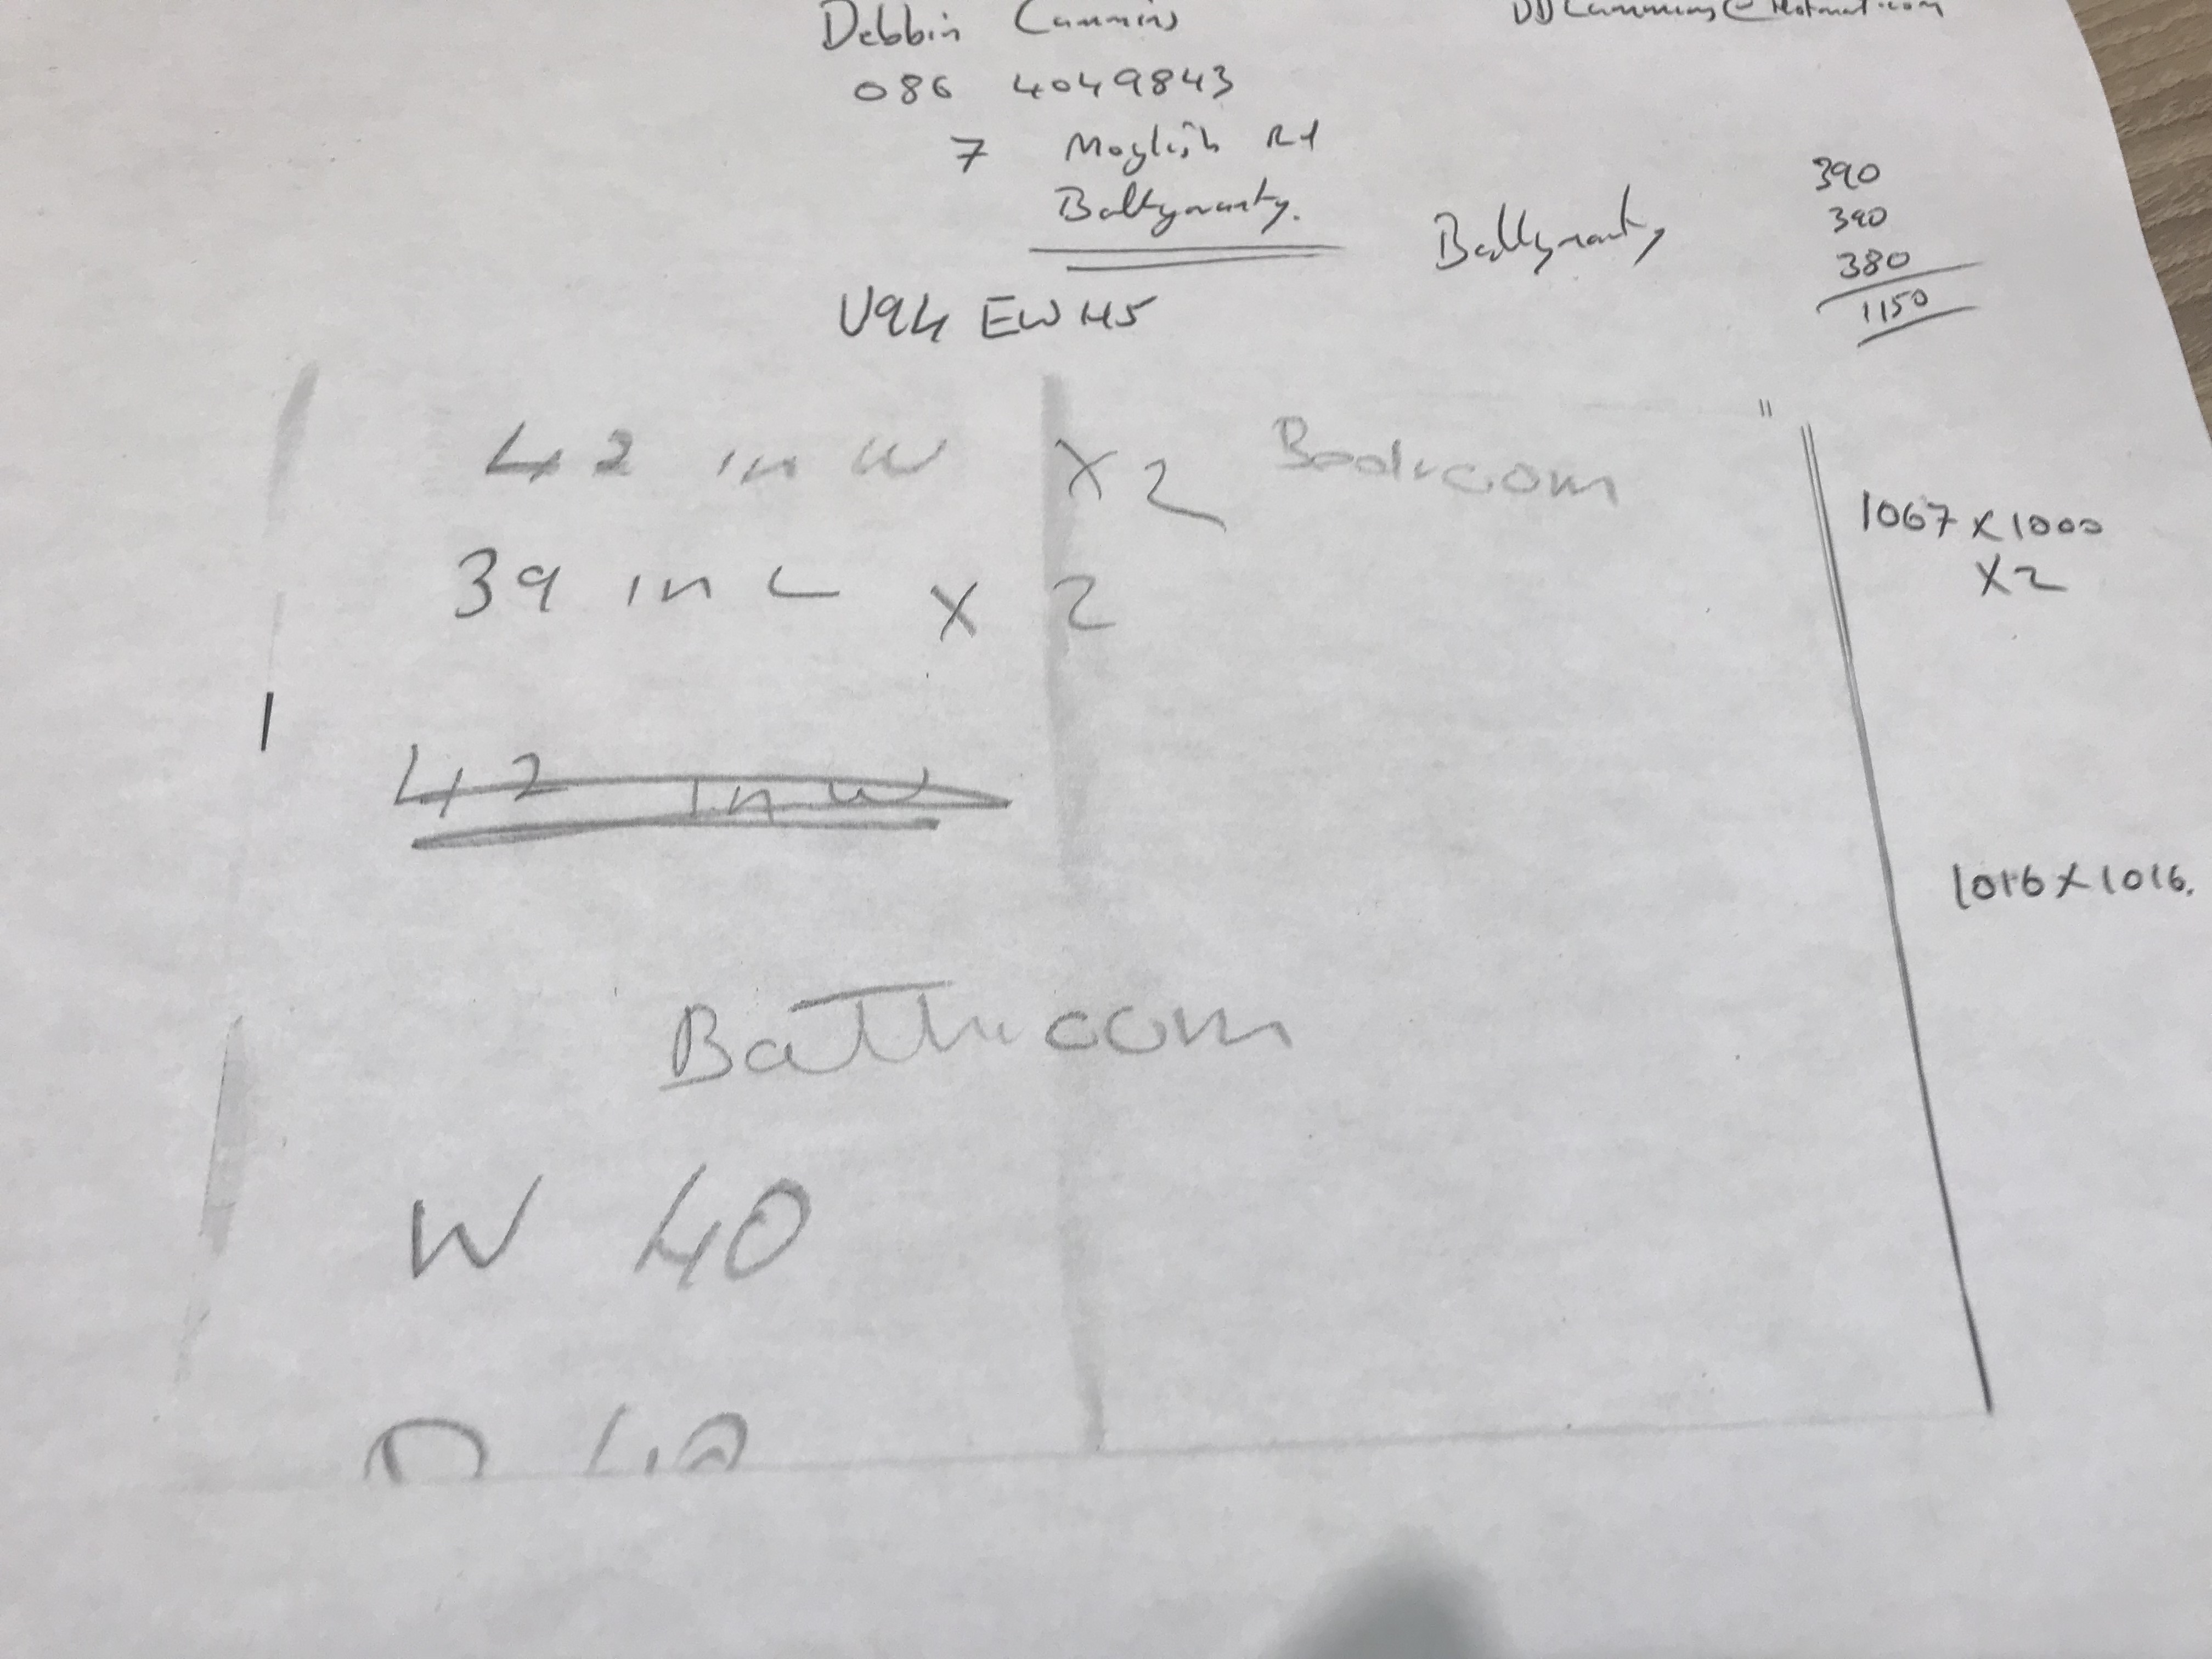 Debbie Cummins
086 4049843
7 Moylish Rd
Ballynanty.
Ballynanty
390
390
380
1150
V94 EWH5
42 in W X2 Bedroom
39 in L X 2
1067 X 1000
X2
42 in W
1016 X 1016.
Bathroom
W 40